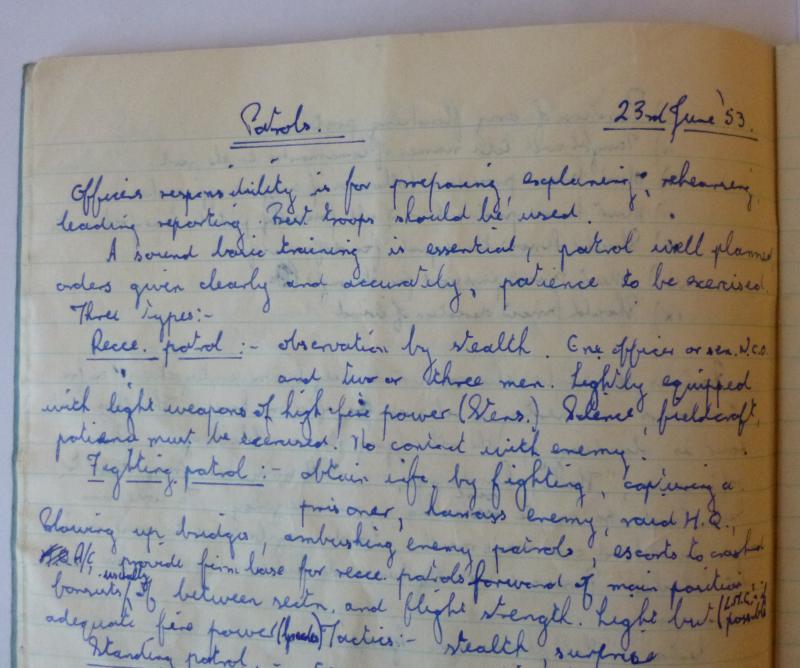 Patrols. 23rd June '53.
Officers responsibility is for preparing, explaining, rehearsing,
leading reporting. Best troops should be used.
A sound basic training is essential, patrol well planned
orders given clearly and accurately, patience to be exercised.
Three Types:-
Recce. patrol :- observation by stealth. One officer or sen. N.C.O.
and two or three men. Lightly equipped
with light weapons of high fire power (Stens.) Silence, fieldcraft,
patience must be exercised. No contact with enemy.
Fighting patrol :- obtain info. by fighting, capturing a
prisoner, harrass enemy, raid H.Q.,
Blowing up bridges, ambushing enemy patrols, escorts to crashed
A/C, provide firm base for recce. patrols forward of main position
usually
of between sectn. and flight strength. Light but (L.M.G. if possible
adequate fire power Tactics:- stealth, surprise
Standing patrol.